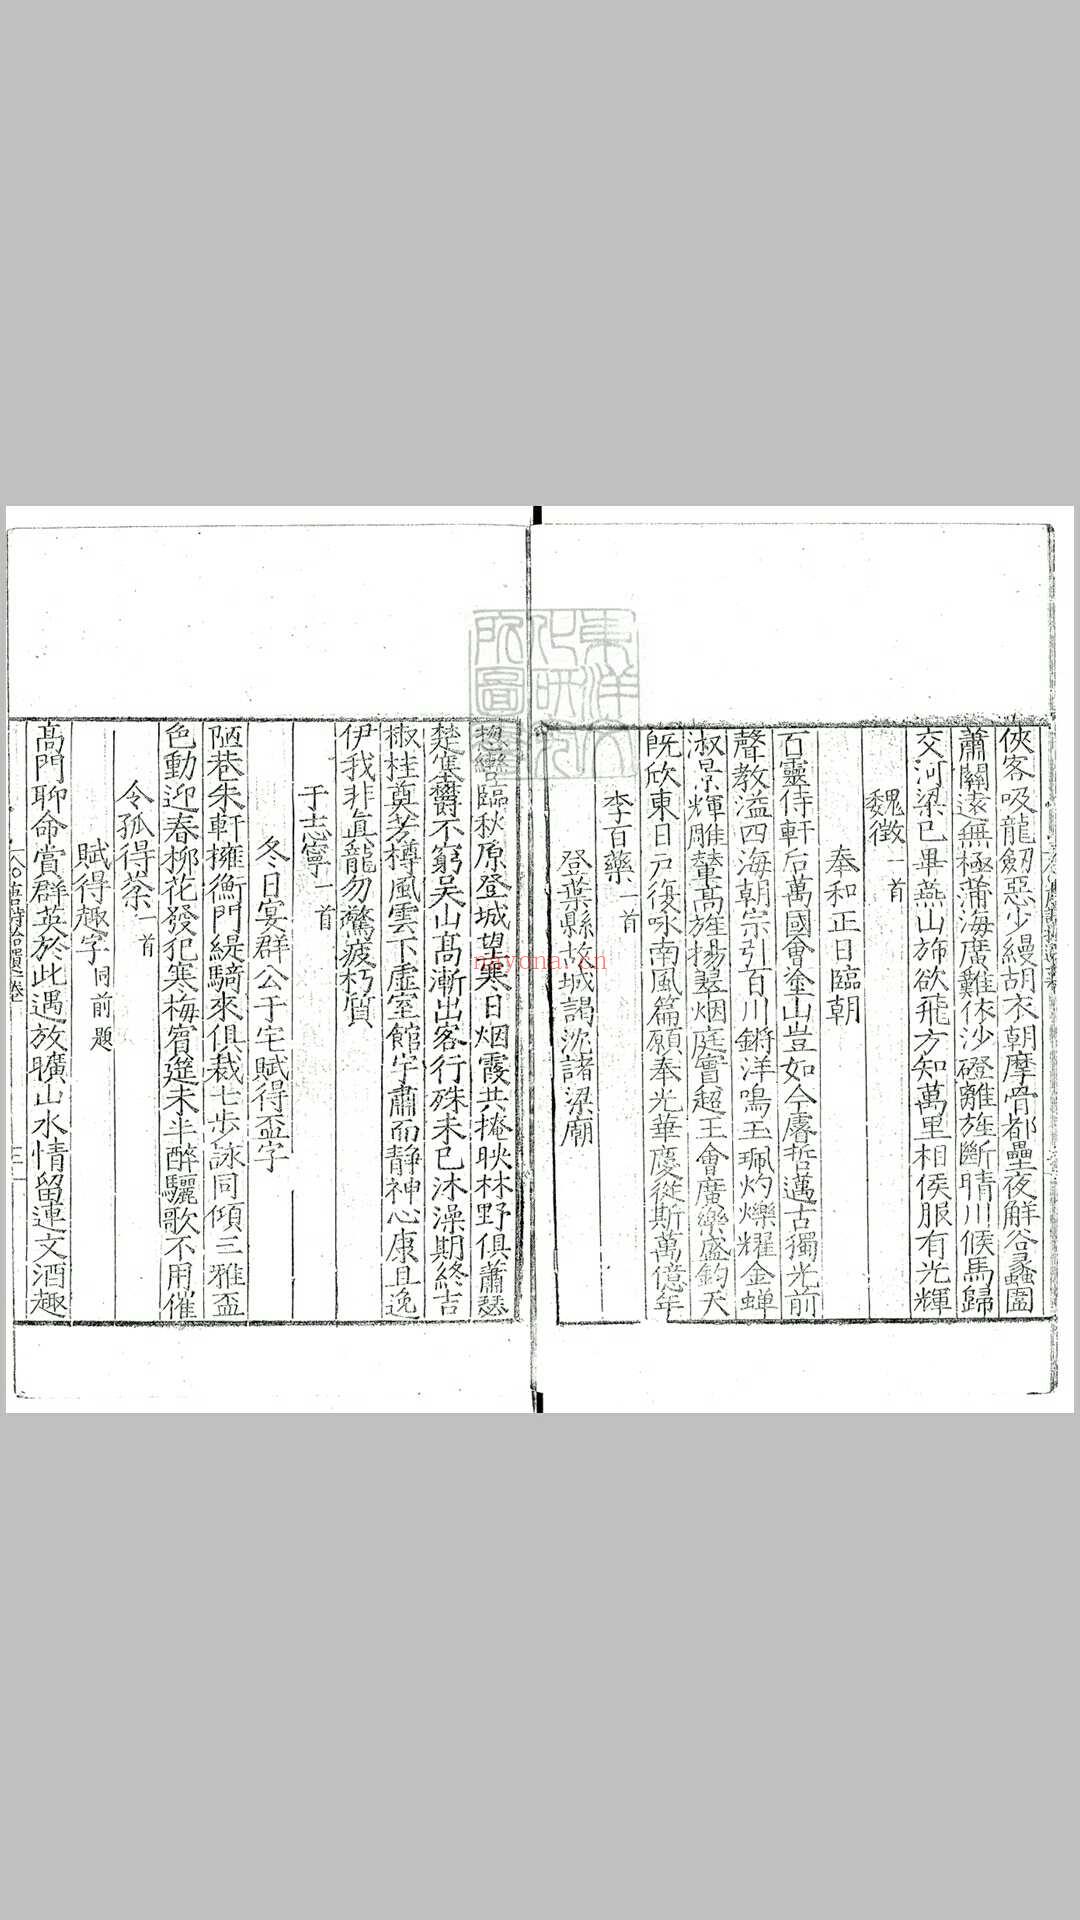 俠客吸龍劒惡少縵胡衣朝摩骨都壘夜解谷蠡圍
蕭關遠無極蒲海廣難依沙磴離旌斷晴川候馬歸
交河梁已畢燕山斾欲飛方知萬里相侯服有光輝
魏徵一首
奉和正日臨朝
百靈侍軒后萬國會塗山豈如今睿哲邁古獨光前
聲教溢四海朝宗引百川鏘洋鳴玉珮灼爍耀金蟬
淑景輝雕輦高旌揚翠烟庭實超王會廣樂盛鈞天
旣欣東日戶復咏南風篇願奉光華慶從斯萬億年
李百藥一首
登葉縣故城謁沈諸梁廟
總轡臨秋原登城望寒日烟霞共掩映林野俱蕭瑟
楚塞鬱不窮吳山高漸出客行殊未已沐澡期終吉
椒桂奠芳樽風雲下虛室館宇肅而静神心康且逸
伊我非眞龍勿驚疲朽質
于志寧一首
冬日宴群公于宅賦得盃字
陋巷朱軒擁衡門緹騎來俱裁七步詠同傾三雅盃
色動迎春柳花發犯寒梅賓筵未半醉驪歌不用催
令狐得棻一首
賦得趣字同前題
高門聊命賞群英於此遇放曠山水情留連文酒趣
東洋文化研究所圖
nayona.cn